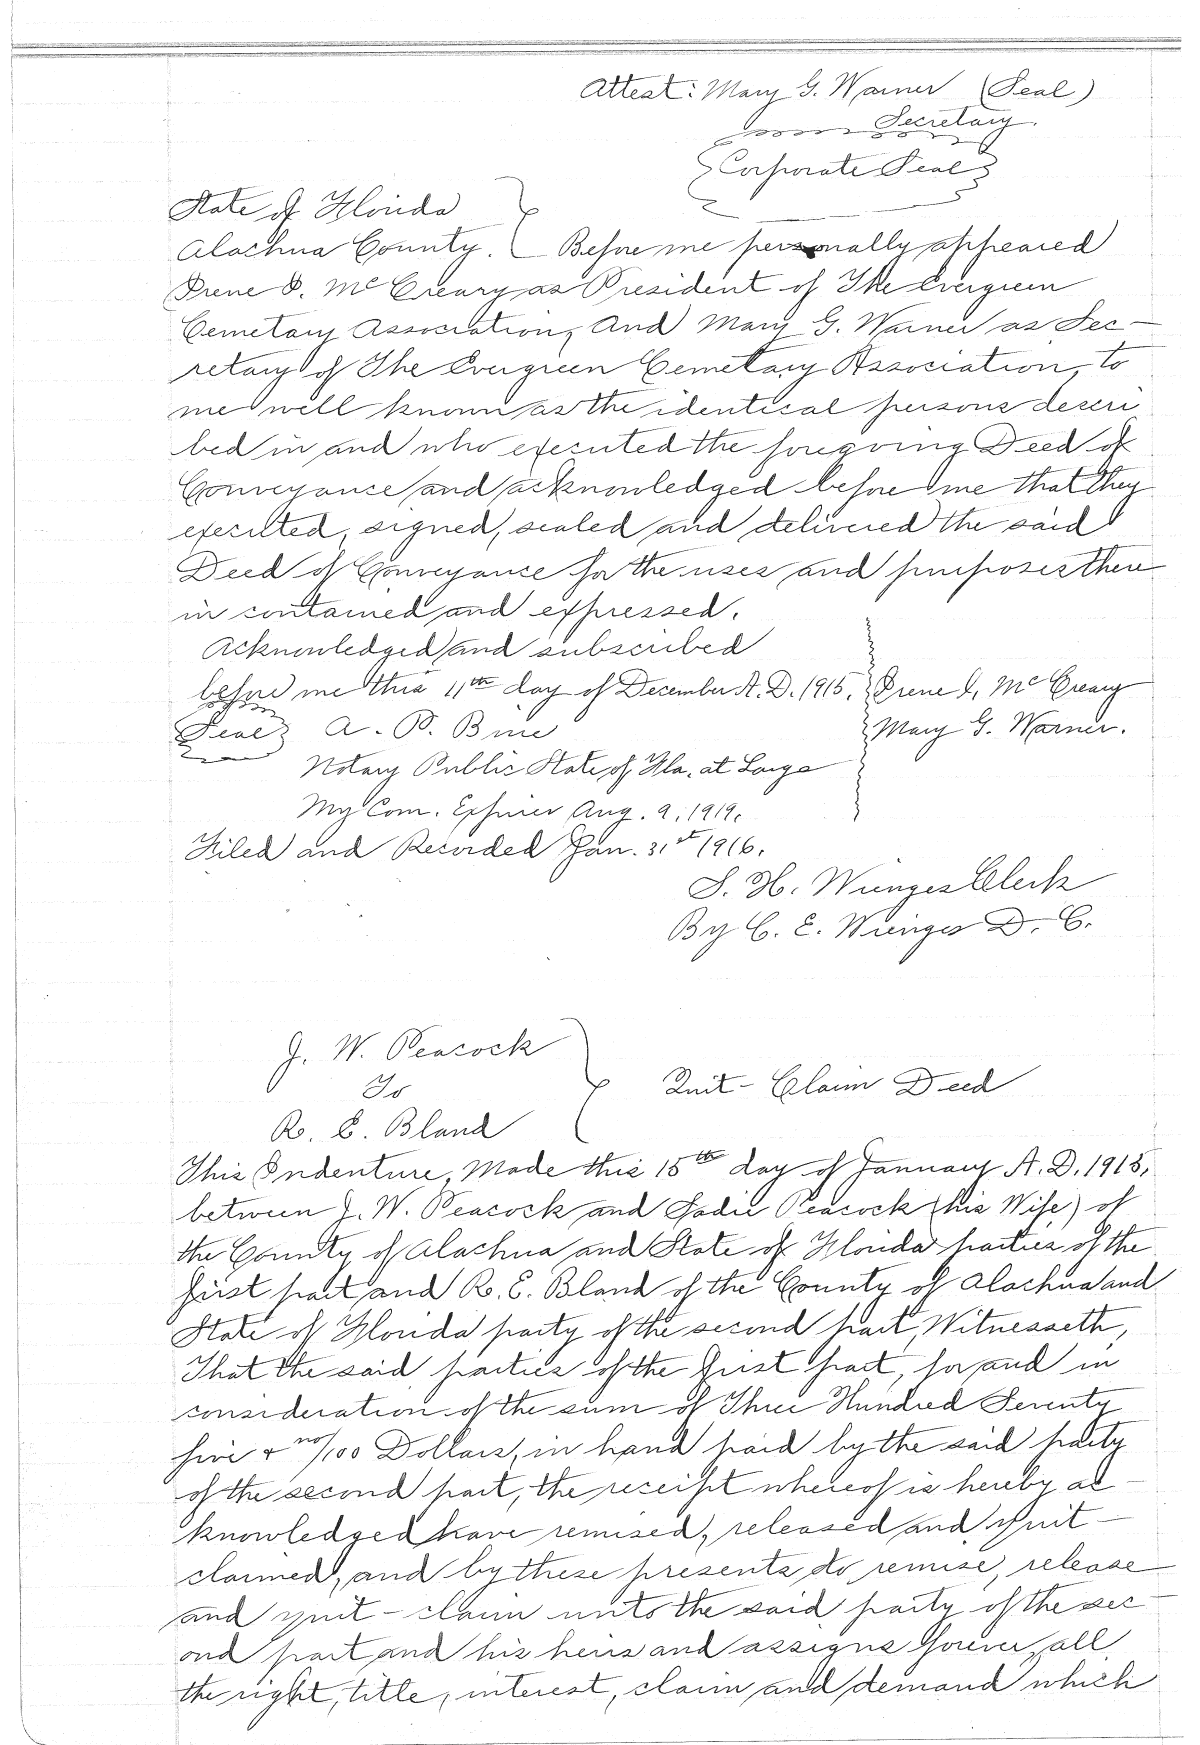 Attest: Mary G. Warner (Seal)
Secretary.
Corporate Seal
State of Florida
Alachua County. Before me personally appeared
Irene I. McCreary as President of The Evergreen
Cemetary Association, And Mary G. Warner as Sec-
retary of The Evergreen Cemetary Association, to
me well known as the identical persons descri
bed in and who executed the foregoing Deed of
Conveyance and acknowledged before me that they
executed, signed, sealed and delivered the said
Deed of Conveyance for the uses and purposes there
in contained and expressed.
Acknowledged and subscribed
before me this 11th day of December A.D. 1915. Irene I. McCreary
Seal A. P. Mary G. Warner.
Notary Public State of Fla. at Large
My Com. Expires Aug. 9, 1919.
Filed and Recorded Jan. 31st 1916.
S. H. Wienges Clerk
By C. E. Wienges D. C.
J. W. Peacock
To
R. E. Bland
Quit-Claim Deed
This Indenture, Made this 15th day of January A.D. 1915,
between J. W. Peacock and Sadie Peacock (his Wife) of
the County of Alachua and State of Florida parties of the
first part, and R. E. Bland of the County of Alachua and
State of Florida party of the second part, Witnesseth,
That the said parties of the first part, for and in
consideration of the sum of Three Hundred Seventy
five + no/100 Dollars, in hand paid by the said party
of the second part, the receipt whereof is hereby ac-
knowledged have remised, released and quit-
claimed, and by these presents do remise, release
and quit-claim unto the said party of the sec-
ond part and his heirs and assigns forever, all
the right, title, interest, claim and demand which